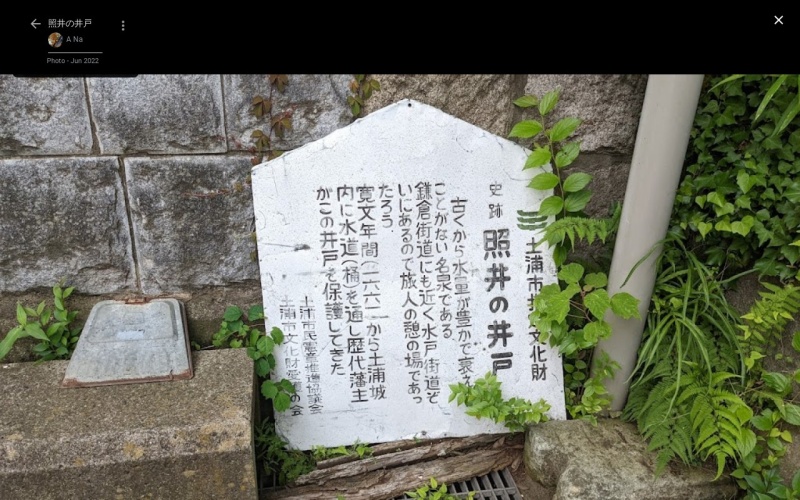 照井の井戸
A Na
Photo - Jun 2022
土浦市 文化財
史跡 照井の井戸
古くから水量が豊かで衰え
ことがない名泉である
鎌倉街道にも近く水戸街道ぞ
いにあるので旅人の憩の場であっ
たろう
寛文年間(一六六一 から土浦城
内に水道(桶 を通し歴代藩主
がこの井戸を保護してきた
土浦市民憲章推進協議会
土浦市文化財愛護の会